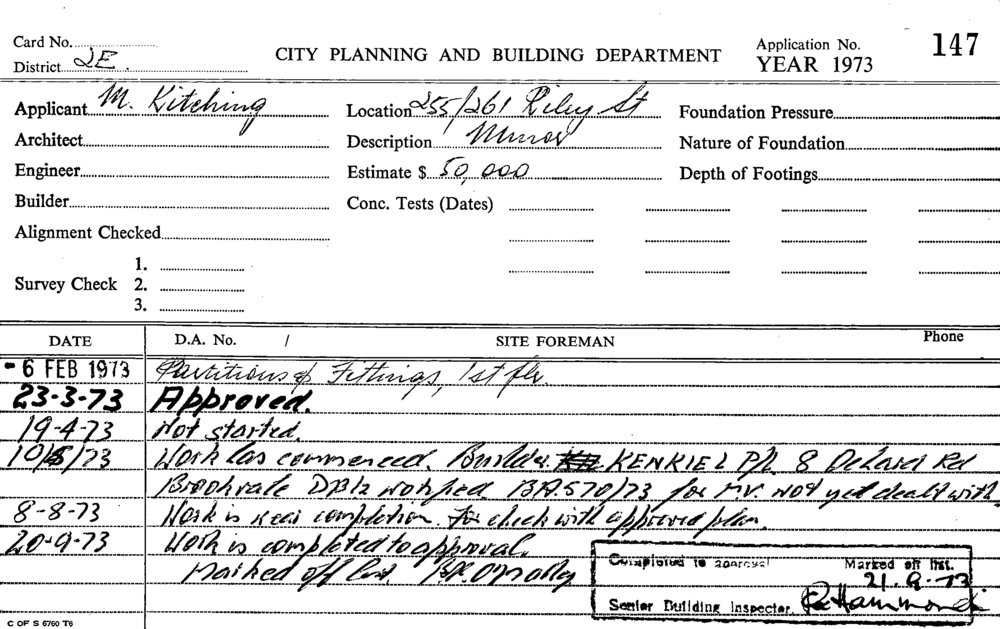 Card No.
CITY PLANNING AND BUILDING DEPARTMENT
Application No. 147
District 2E.
YEAR 1973
Applicant M. Kitching
Location 255/261 Riley St
Foundation Pressure
Architect
Description Minor
Nature of Foundation
Engineer
Estimate $ 50,000
Depth of Footings
Builder
Conc. Tests (Dates)
Alignment Checked
Survey Check
1.
2.
3.
DATE D.A. No. / SITE FOREMAN Phone
- 6 FEB 1973 Partitions & Fittings, 1st flr.
23-3-73 Approved.
19-4-73 Not started.
10/5/73 Work has commenced. Builder. KENKIEL P/L 8 Rd
Brookvale notified BA.570/73 for not yet dealt with
8-8-73 Work is near completion. check with approved plan.
20-9-73 Work is completed to approval.
Marked off list.
Completed to approval Marked off list.
21.9.73
Senior Building Inspector. Hammond
C OF S 6760 T6